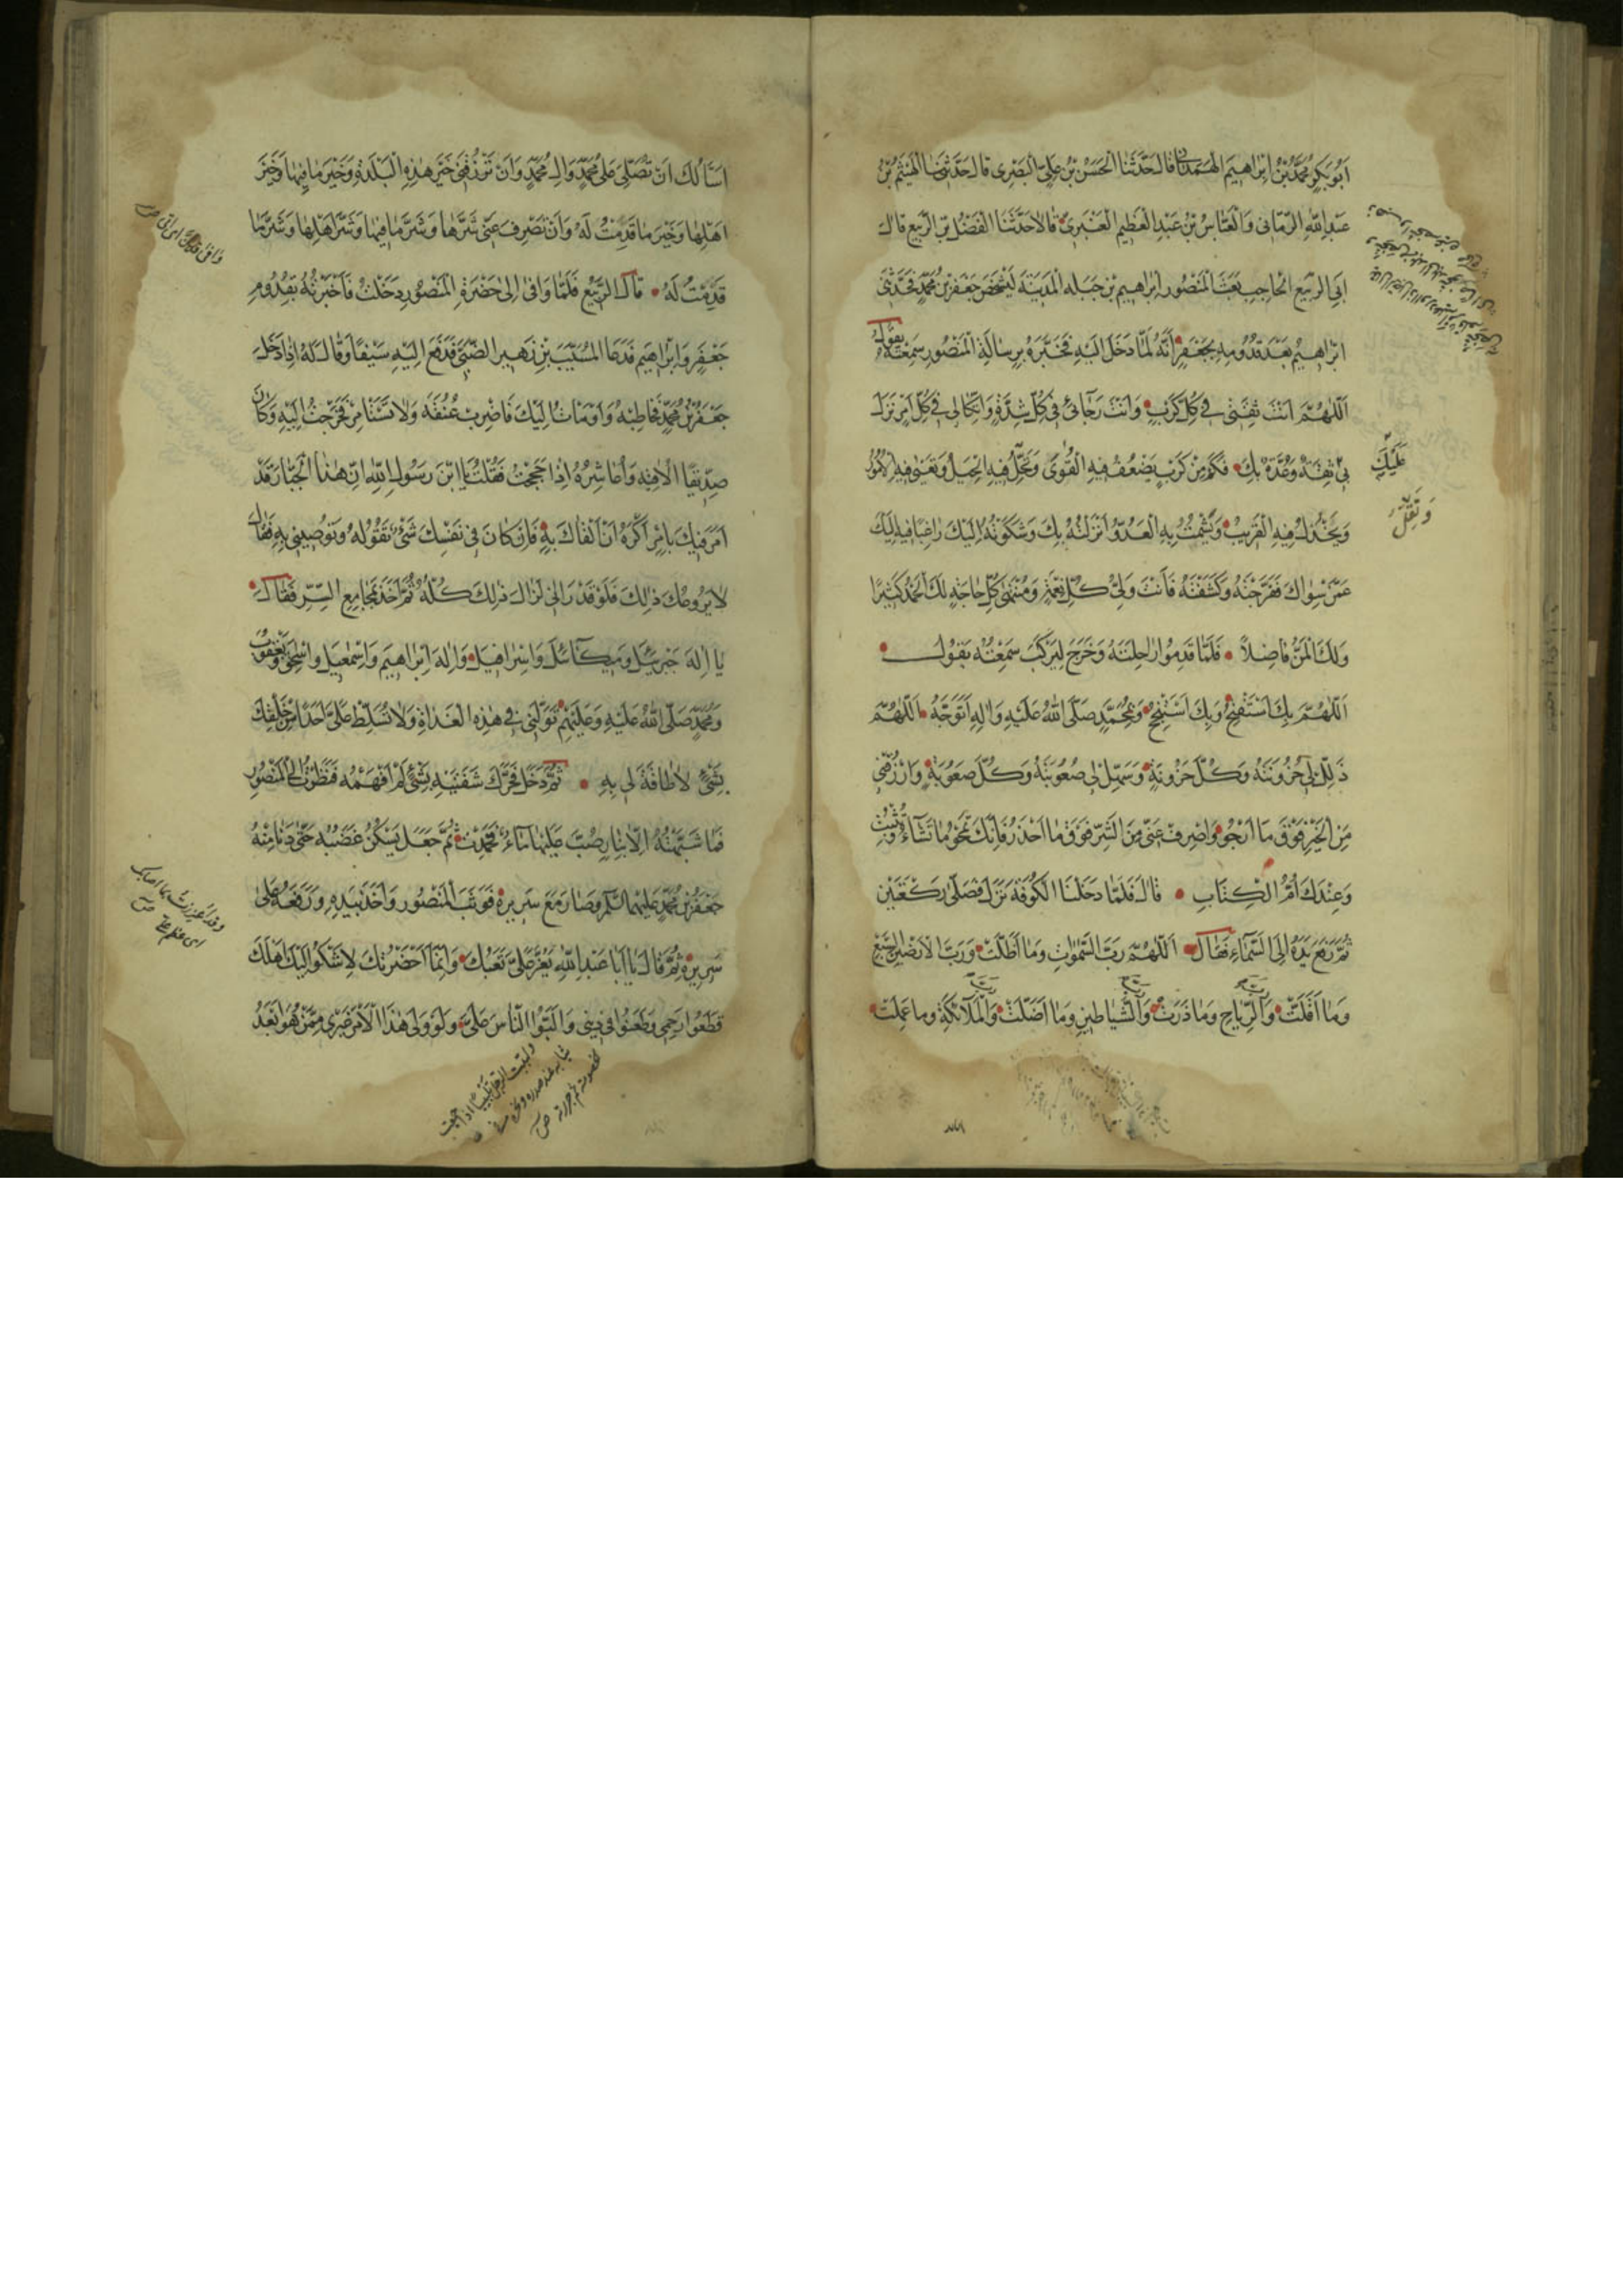 ابو بكر محمد بن ابراهيم الهمداني قال حدثنا الحسن بن علي البصري قال حدثنا الهيثم بن
عبد الله الرماني والعباس بن عبد العظيم العنبري قالا حدثنا الفضل بن الربيع قال
ابي الربيع الحاجب بعث المنصور ابراهيم بن جبلة المدينة ليشخص جعفر بن محمد فحدثني
ابراهيم بعد قدومه بجعفر انه لما دخل اليه فخبره برسالة المنصور سمعته يقول
اَللّٰهُمَّ اَنْتَ ثِقَتي في كُلِّ كَرْبٍ وَاَنْتَ رَجائي في كُلِّ شِدَّةٍ وَاتِّكالي في كُلِّ اَمْرٍ نَزَلَ
بي ثِقَةٌ وَعُدَّةٌ بِكَ فَكَمْ مِنْ كَرْبٍ يَضْعُفُ فيهِ الْقُوىٰ وَتَقِلُّ فيهِ الْحِيَلُ وَتَعْيىٰ فيهِ الْاُمُورُ
عَلَيْكَ
وَتَقِلُّ
وَيَخْذُلُ فيهِ الْقَريبُ وَيَشْمَتُ بِهِ الْعَدُوُّ اَنْزَلْتُهُ بِكَ وَشَكَوْتُهُ اِلَيْكَ راغِبًا فيهِ اِلَيْكَ
عَمَّنْ سِواكَ فَفَرَّجْتَهُ وَكَشَفْتَهُ فَاَنْتَ وَلِيُّ كُلِّ نِعْمَةٍ وَمُنْتَهىٰ كُلِّ حاجَةٍ لَكَ الْحَمْدُ كَثيرًا
وَلَكَ الْمَنُّ فاضِلاً فَلَمّا قَدِمُوا راحِلَتَهُ وَخَرَجَ لِيَرْكَبَ سَمِعْتُهُ يَقُولُ
اَللّٰهُمَّ بِكَ اَسْتَفْتِحُ وَبِكَ اَسْتَنْجِحُ وَبِمُحَمَّدٍ صَلَّى اللهُ عَلَيْهِ وَاٰلِهِ اَتَوَجَّهُ اَللّٰهُمَّ
ذَلِّلْ لي حُزُونَتَهُ وَكُلَّ حُزُونَةٍ وَسَهِّلْ لي صُعُوبَتَهُ وَكُلَّ صُعُوبَةٍ وَارْزُقْني
مِنَ الْخَيْرِ فَوْقَ ما اَرْجُو وَاصْرِفْ عَنّي مِنَ الشَّرِّ فَوْقَ ما اَحْذَرُ فَاِنَّكَ تَمْحُو ما تَشآءُ وَتُثْبِتُ
وَعِنْدَكَ اُمُّ الْكِتابِ قالَ فَلَمّا دَخَلْنَا الْكُوفَةَ نَزَلَ فَصَلّىٰ رَكْعَتَيْنِ
ثُمَّ رَفَعَ يَدَهُ اِلَى السَّمآءِ فَقالَ اَللّٰهُمَّ رَبَّ السَّمٰواتِ وَما اَظَلَّتْ وَرَبَّ الْاَرَضينَ السَّبْعِ
وَما اَقَلَّتْ وَالرِّياحِ وَما ذَرَتْ وَالشَّياطينِ وَما اَضَلَّتْ وَالْمَلآئِكَةِ وَما عَمِلَتْ
اَسْاَلُكَ اَنْ تُصَلِّيَ عَلىٰ مُحَمَّدٍ وَاٰلِ مُحَمَّدٍ وَاَنْ تَرْزُقَني خَيْرَ هٰذِهِ الْبَلْدَةِ وَخَيْرَ ما فيها وَخَيْرَ
اَهْلِها وَخَيْرَ ما قَدِمْتُ لَهُ وَاَنْ تَصْرِفَ عَنّي شَرَّها وَشَرَّ ما فيها وَشَرَّ اَهْلِها وَشَرَّ ما
قَدِمْتُ لَهُ قالَ الرَّبيعُ فَلَمّا وافىٰ اِلىٰ حَضْرَةِ الْمَنْصُورِ دَخَلْتُ فَاَخْبَرْتُهُ بِقُدُومِ
جَعْفَرٍ وَاِبْراهيمَ فَدَعَا الْمُسَيَّبَ بْنَ زُهَيْرٍ الضَّبِّيَّ فَدَفَعَ اِلَيْهِ سَيْفًا وَقالَ لَهُ اِذا دَخَلَ
جَعْفَرُ بْنُ مُحَمَّدٍ فَخاطَبْتُهُ وَاَوْمَاْتُ اِلَيْكَ فَاضْرِبْ عُنُقَهُ وَلا تَسْتَاْمِرْ فَخَرَجْتُ اِلَيْهِ وَكانَ
صَديقًا اُلاقيهِ وَاُعاشِرُهُ اِذا حَجَجْتُ فَقُلْتُ يَا ابْنَ رَسُولِ اللهِ اِنَّ هٰذَا الْجَبّارَ قَدْ
اَمَرَ فيكَ بِاَمْرٍ اَكْرَهُ اَنْ اَلْقاكَ بِهِ فَاِنْ كانَ في نَفْسِكَ شَيْءٌ تَقُولُهُ وَتُوصيني بِهِ فَقالَ
لا يَرُوعُكَ ذٰلِكَ فَلَوْ قَدْ رَاٰني لَزالَ ذٰلِكَ كُلُّهُ ثُمَّ اَخَذَ بِمَجامِعِ السِّتْرِ فَقالَ
يا اِلٰهَ جَبْرَئيلَ وَميكآئيلَ وَاِسْرافيلَ وَاِلٰهَ اِبْراهيمَ وَاِسْمٰعيلَ وَاِسْحٰقَ وَيَعْقُوبَ
وَمُحَمَّدٍ صَلَّى اللهُ عَلَيْهِ وَعَلَيْهِمْ تَوَلَّني في هٰذِهِ الْغَداةِ وَلا تُسَلِّطْ عَلَيَّ اَحَدًا مِنْ خَلْقِكَ
بِشَيْءٍ لا طاقَةَ لي بِهِ ثُمَّ دَخَلَ فَحَرَّكَ شَفَتَيْهِ بِشَيْءٍ لَمْ اَفْهَمْهُ فَنَظَرْتُ اِلَى الْمَنْصُورِ
فَما شَبَّهْتُهُ اِلّا بِنارٍ صُبَّ عَلَيْها مآءٌ فَخَمِدَتْ ثُمَّ جَعَلَ يَسْكُنُ غَضَبُهُ حَتّىٰ دَنا مِنْهُ
جَعْفَرُ بْنُ مُحَمَّدٍ عَلَيْهِمَا السَّلامُ وَصارَ مَعَ سَريرِهِ فَوَثَبَ الْمَنْصُورُ وَاَخَذَ بِيَدِهِ وَرَفَعَهُ عَلىٰ
سَريرِهِ ثُمَّ قالَ يا اَبا عَبْدِ اللهِ يَعُزُّ عَلَيَّ تَعَبُكَ وَاِنَّما اَحْضَرْتُكَ لِاَشْكُوَ اِلَيْكَ اَهْلَكَ
قَطَعُوا رَحِمي وَطَعَنُوا في ديني وَاَلَّبُوا النّاسَ عَلَيَّ وَلَوْ وَلِيَ هٰذَا الْاَمْرَ غَيْري مِمَّنْ هُوَ اَبْعَدُ